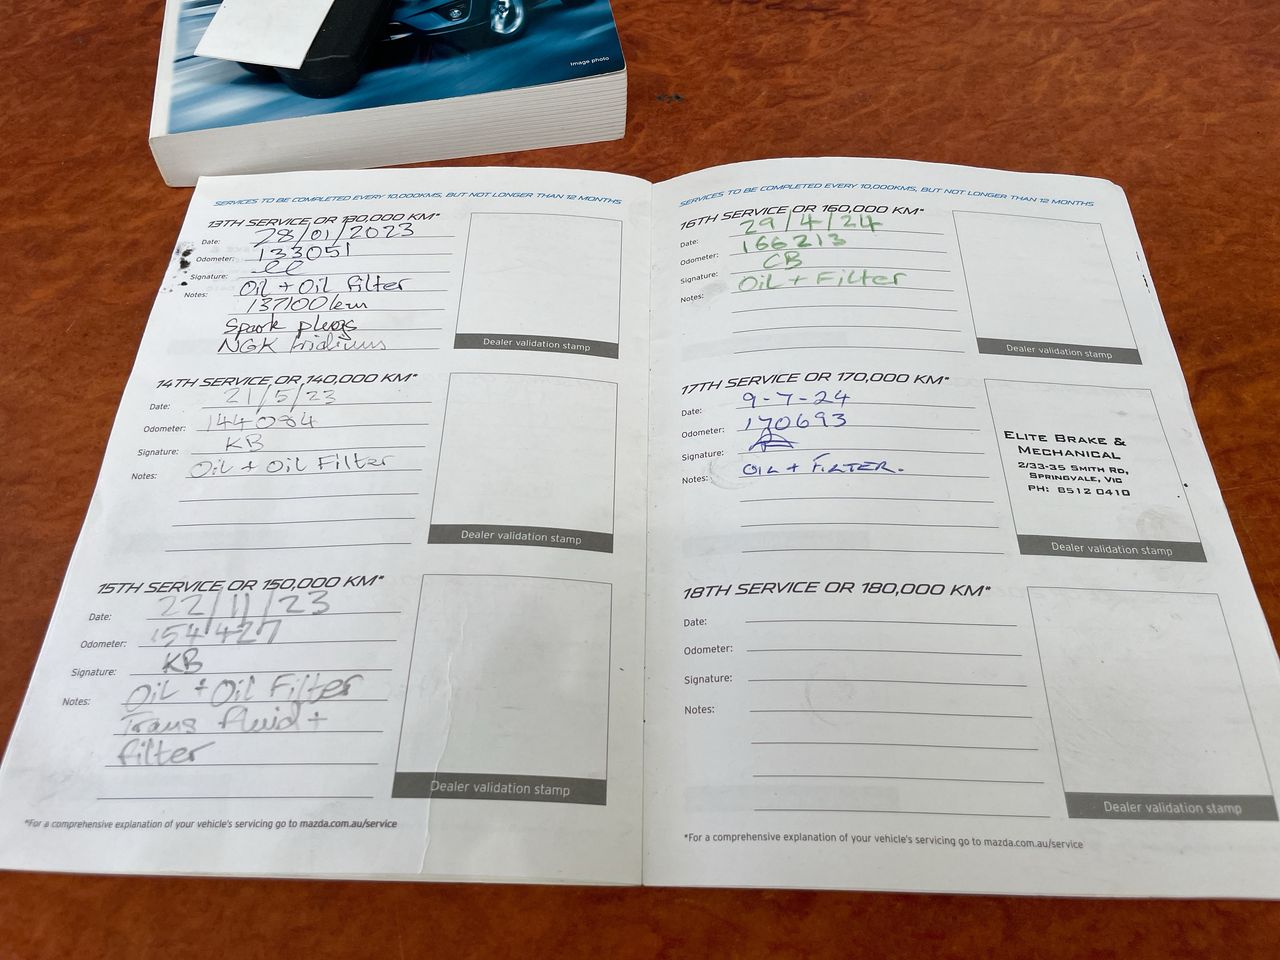 Image photo
SERVICES TO BE COMPLETED EVERY 10,000KMS, BUT NOT LONGER THAN 12 MONTHS
13TH SERVICE OR 130,000 KM*
Date: 28/01/2023
Odometer: 133051
Signature:
Notes: Oil + Oil filter
137100km
Spark plugs
NGK Iridiums
Dealer validation stamp
14TH SERVICE OR 140,000 KM*
Date: 21/5/23
Odometer: 144084
Signature: KB
Notes: Oil + Oil Filter
Dealer validation stamp
15TH SERVICE OR 150,000 KM*
Date: 22/11/23
Odometer: 154427
Signature: KB
Notes: Oil + Oil Filter
Trans fluid +
filter
Dealer validation stamp
*For a comprehensive explanation of your vehicle's servicing go to mazda.com.au/service
SERVICES TO BE COMPLETED EVERY 10,000KMS, BUT NOT LONGER THAN 12 MONTHS
16TH SERVICE OR 160,000 KM*
Date: 29/4/24
Odometer: 166213
Signature: CB
Notes: Oil + Filter
Dealer validation stamp
17TH SERVICE OR 170,000 KM*
Date: 9-7-24
Odometer: 170693
Signature:
Notes: OIL + FILTER.
ELITE BRAKE &
MECHANICAL
2/33-35 SMITH RD,
SPRINGVALE, VIC
PH: 8512 0410
Dealer validation stamp
18TH SERVICE OR 180,000 KM*
Date:
Odometer:
Signature:
Notes:
Dealer validation stamp
*For a comprehensive explanation of your vehicle's servicing go to mazda.com.au/service